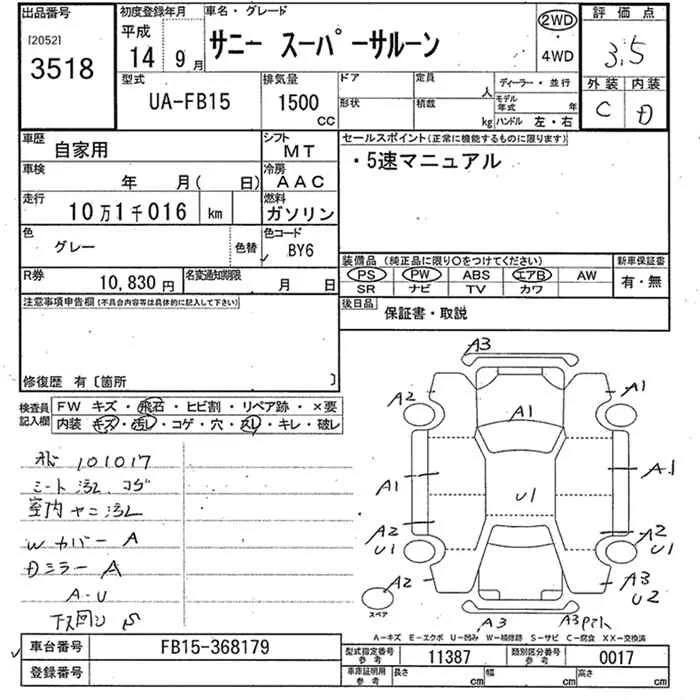 出品番号
[2052]
3518
初度登録年月
平成
14 9月
車名・グレード
サニー スーパーサルーン
2WD
・
4WD
評価点
3.5
外装 内装
C D
型式
UA-FB15
排気量
1500
CC
ドア
形状
定員
人
積載
kg
ディーラー・並行
モデル年式 年
ハンドル 左・右
車歴
自家用
シフト
MT
車検
年 月( 日)
冷房
AAC
走行
10万1千016 km
燃料
ガソリン
色
グレー
色替
色コード
BY6
R券
10,830円
名変通知期限
月 日
セールスポイント(正常に機能するものに限ります)
・5速マニュアル
装備品(純正品に限り○をつけてください)
PS PW ABS エアB AW
SR ナビ TV カワ
新車保証書
有・無
後日品
保証書・取説
注意事項申告欄(不具合内容等は具体的に記入して下さい)
修復歴 有〔箇所 〕
検査員
記入欄
FW キズ・飛石・ヒビ割・リペア跡・×要
内装 キズ・汚レ・コゲ・穴・スレ・キレ・破レ
101017
シート汚レ、コゲ
室内ヤニ汚レ
Wカバー A
Dミラー A
A-U
下回り S
A3
A2
A1
A1
A1
A1
U1
A2
U1
A2
U1
A2
スペア
A3
U2
A3
A3
A-キズ E-エクボ U-凹み W-補修跡 S-サビ C-腐食 XX-交換済
車台番号
FB15-368179
登録番号
型式指定番号
参考
11387
類別区分番号
参考
0017
車庫証明用
参考
長さ cm
幅 cm
高さ cm